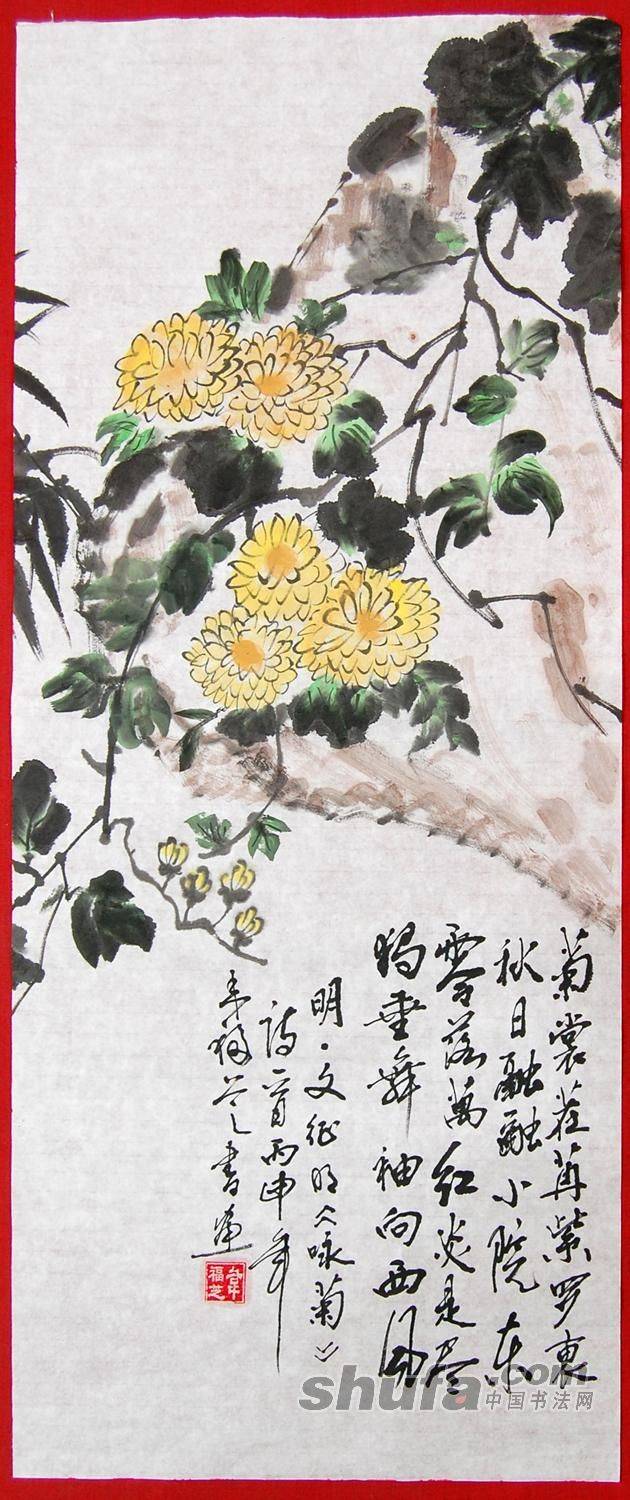 菊裳荏苒紫罗衷
秋日融融小院东
零落萬红炎是尽
独垂舞袖向西风
明·文征明《咏菊》
诗一首丙申年
车福芝书画
福芝
shufa.com
中国书法网